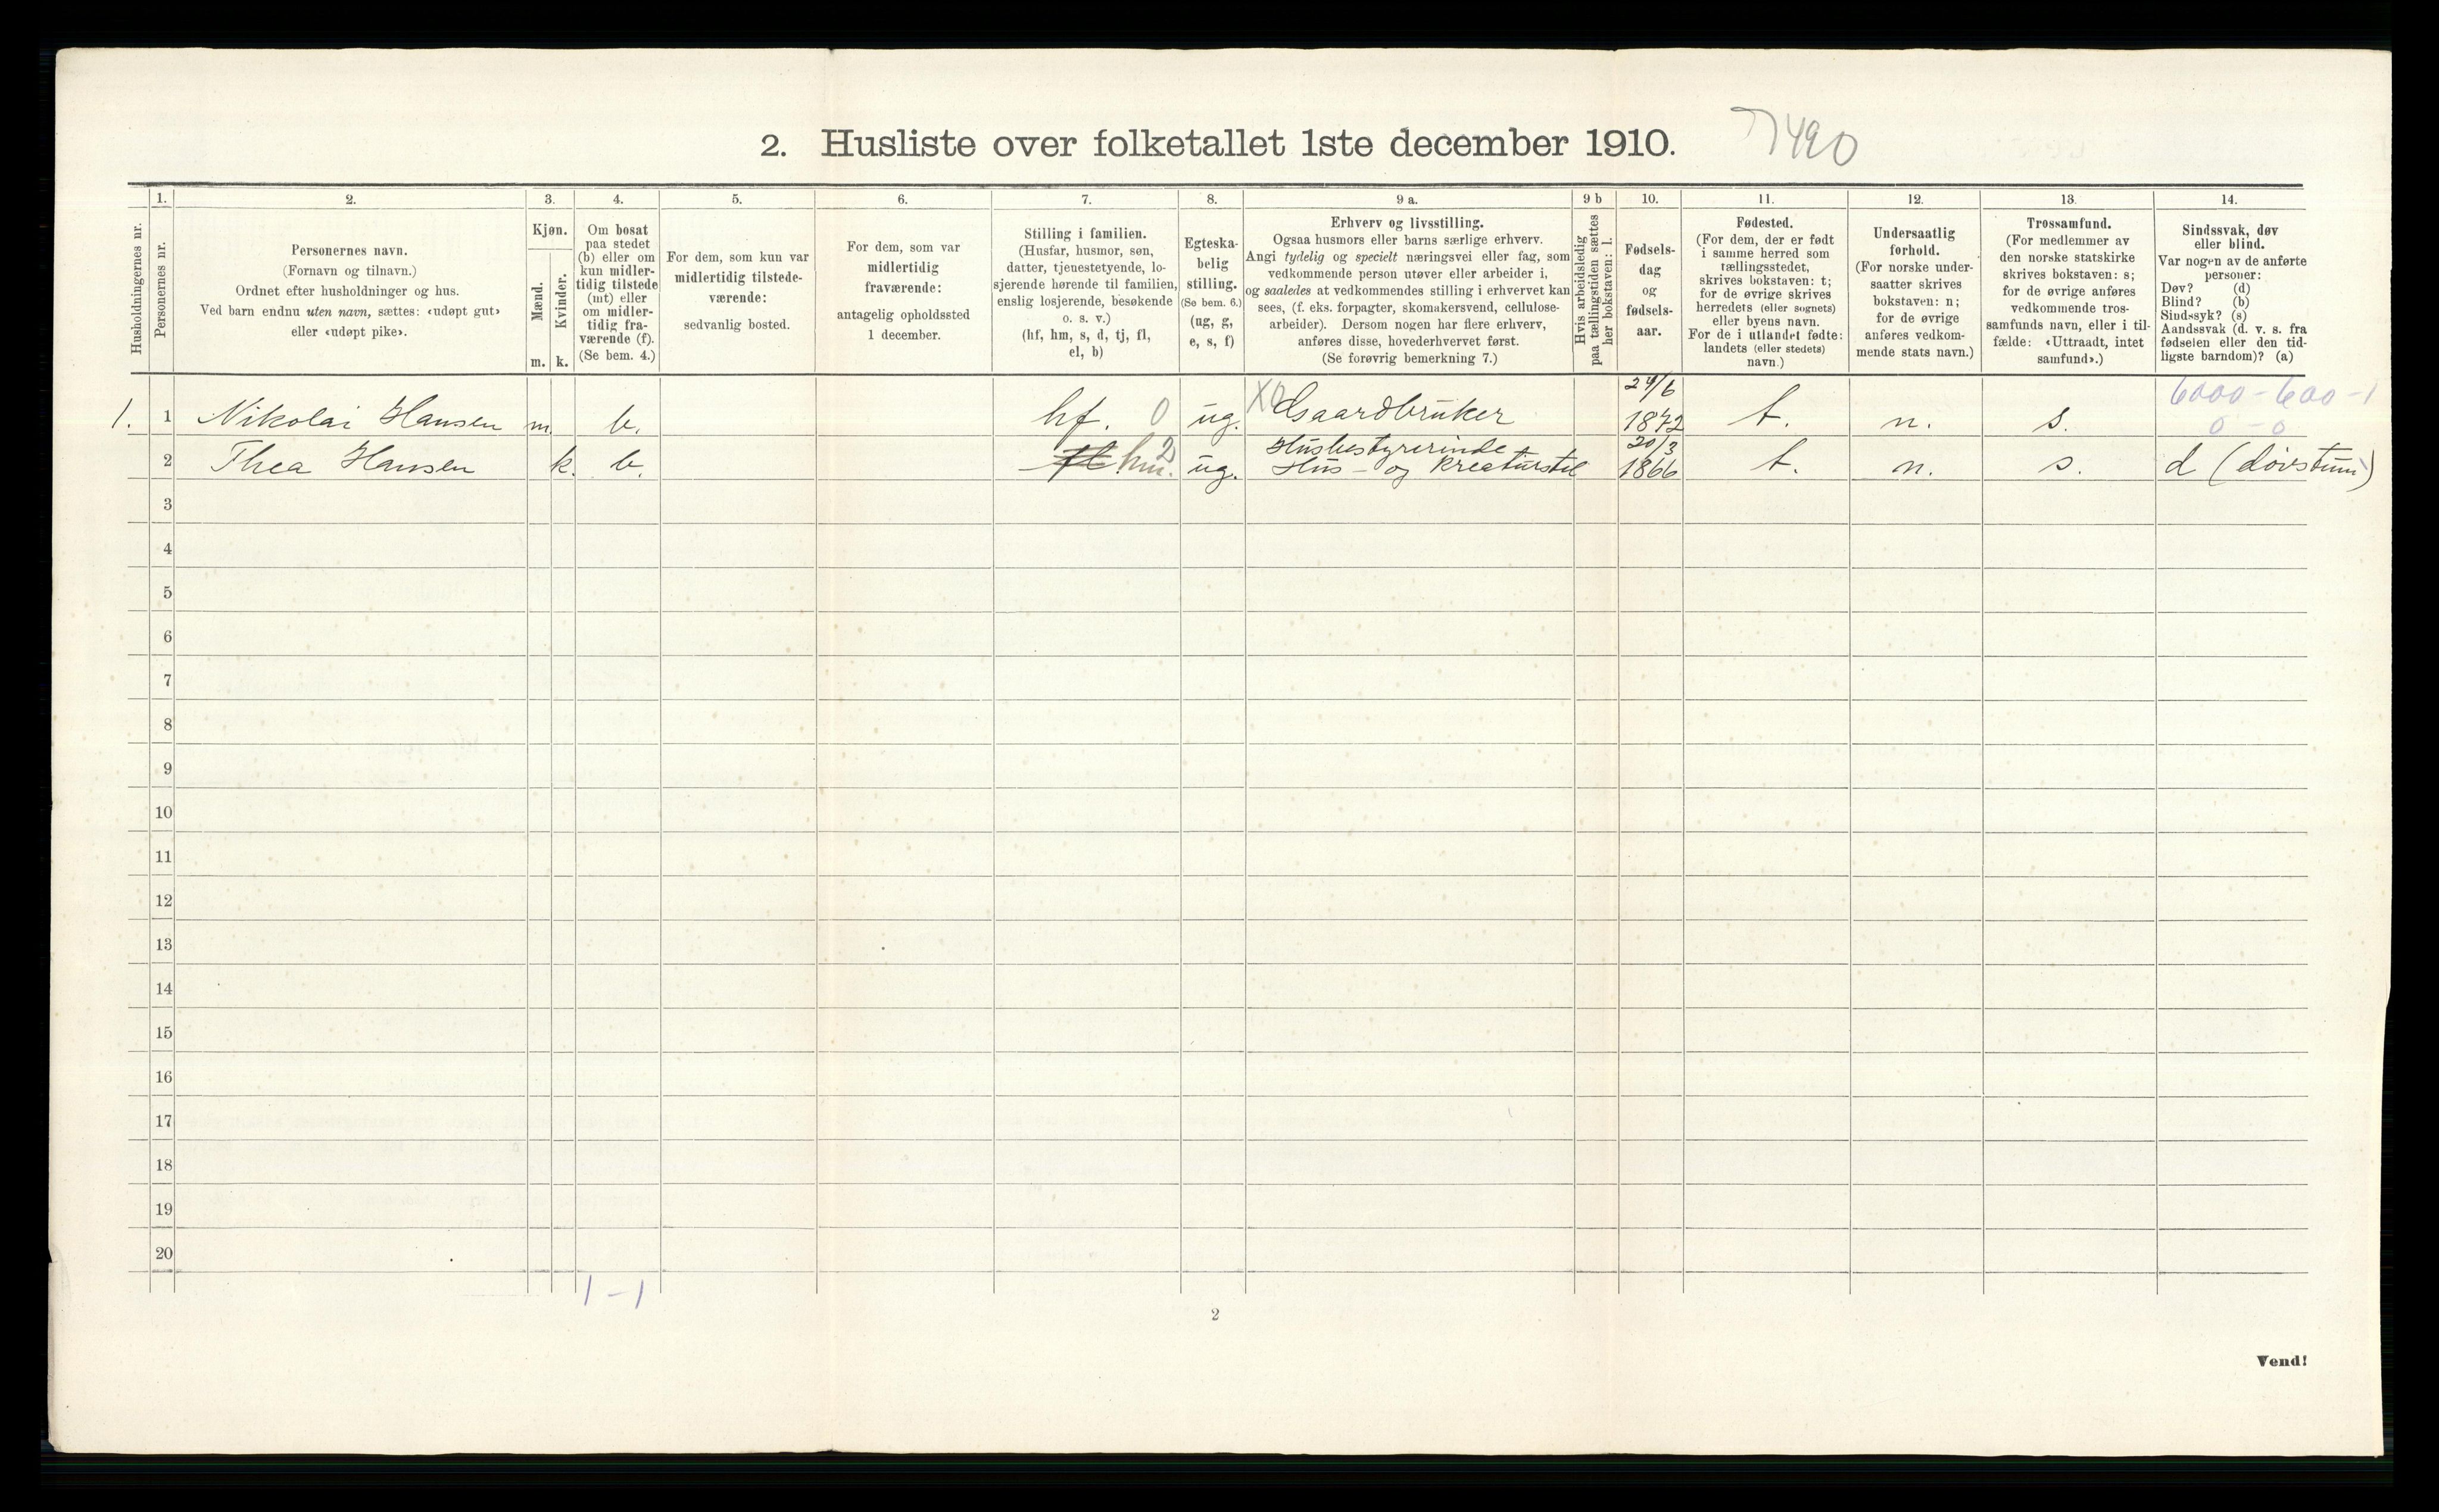 2. Husliste over folketallet 1ste december 1910. 7490
Husholdningernes nr.
1.
Personernes nr.
2.
Personernes navn.
(Fornavn og tilnavn.)
Ordnet efter husholdninger og hus.
Ved barn endnu uten navn, sættes: «udøpt gut»
eller «udøpt pike».
3.
Kjøn.
Mænd.
m.
Kvinder.
k.
4.
Om bosat
paa stedet
(b) eller om
kun midler-
tidig tilstede
(mt) eller
om midler-
tidig fra-
værende (f).
(Se bem. 4.)
5.
For dem, som kun var
midlertidig tilstede-
værende:
sedvanlig bosted.
6.
For dem, som var
midlertidig
fraværende:
antagelig opholdssted
1 december.
7.
Stilling i familien.
(Husfar, husmor, søn,
datter, tjenestetyende, lo-
sjerende hørende til familien,
enslig losjerende, besøkende
o. s. v.)
(hf, hm, s, d, tj, fl,
el, b)
8.
Egteska-
belig
stilling.
(Se bem. 6.)
(ug, g,
e, s, f)
9 a.
Erhverv og livsstilling.
Ogsaa husmors eller barns særlige erhverv.
Angi tydelig og specielt næringsvei eller fag, som
vedkommende person utøver eller arbeider i,
og saaledes at vedkommendes stilling i erhvervet kan
sees, (f. eks. forpagter, skomakersvend, cellulose-
arbeider). Dersom nogen har flere erhverv,
anføres disse, hovederhvervet først.
(Se forøvrig bemerkning 7.)
9 b
Hvis arbeidsledig
paa tællingstiden sættes
her bokstaven: l.
10.
Fødsels-
dag
og
fødsels-
aar.
11.
Fødested.
(For dem, der er født
i samme herred som
tællingsstedet,
skrives bokstaven: t;
for de øvrige skrives
herredets (eller sognets)
eller byens navn.
For de i utlandet fødte:
landets (eller stedets)
navn.)
12.
Undersaatlig
forhold.
(For norske under-
saatter skrives
bokstaven: n;
for de øvrige
anføres vedkom-
mende stats navn.)
13.
Trossamfund.
(For medlemmer av
den norske statskirke
skrives bokstaven: s;
for de øvrige anføres
vedkommende tros-
samfunds navn, eller i til-
fælde: «Uttraadt, intet
samfund».)
14.
Sindssvak, døv
eller blind.
Var nogen av de anførte
personer:
Døv? (d)
Blind? (b)
Sindssyk? (s)
Aandssvak (d. v. s. fra
fødselen eller den tid-
ligste barndom)? (a)
24/6 6000-600-1
1. 1 Nikolai Hansen m. b. hf. 0 ug. X0 Gaardbruker 1872 t. n. s. 0-0
Husbestyrerinde 20/3
2 Thea Hansen k. b. hm. 2 ug. Hus- og kreaturstel 1866 t. n. s. d (døvstum)
3
4
5
6
7
8
9
10
11
12
13
14
15
16
17
18
19
20
1-1
2
Vend!